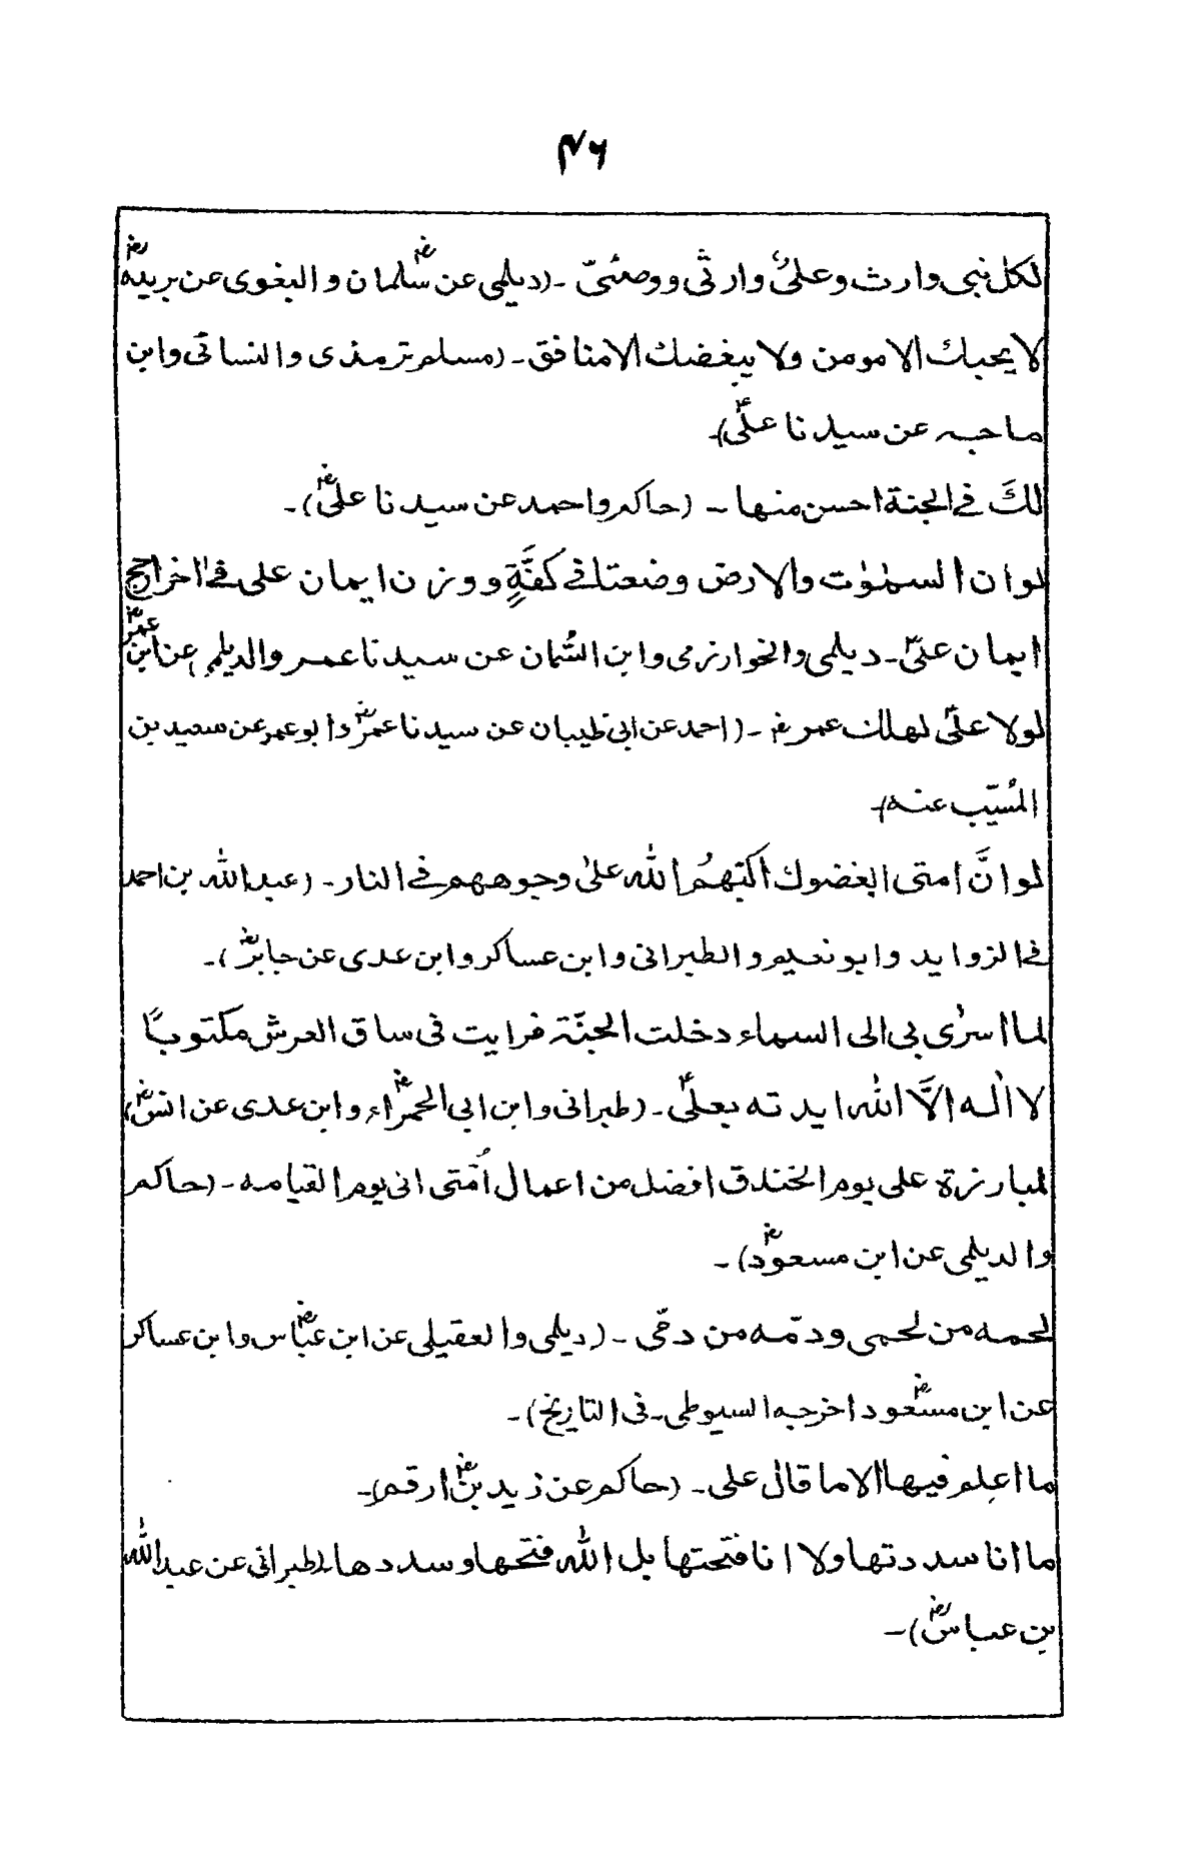 ۴۶
لكل نبى وارث وعلىٌّ وارثى ووصئىّ ۔ (ديلمى عن سلمانؓ والبغوى عن بريدهؓ
لا يحبك الا مومن ولا يبغضك الا منافق ۔ (مسلم ترمذى والنسائى وابن
ماجه عن سيدنا علىؑ)۔
لكَ فى الجنة احسن منها ۔ (حاكم واحمد عن سيدنا علىؓ)۔
لو ان السمٰوٰت والارض وضعتا فى كفَّةٍ ووزن ايمان على فى اخرا جح
ايمان علىؑ۔ ديلمى والخوارزمى وابن السُمان عن سيدنا عمر والديلمى عن ابن عمرؓ
لولا علىؑ لهلك عمرؓ ۔ (احمد عن ابى ظبيان عن سيدنا عمرؓ وابو عمر عن سعيد بن
المُسيّب عنه)۔
لو انَّ امتى ابغضوك اكبّهُم الله علىٰ وجوههم فى النار۔ (عبدالله بن احمد
فى الزوايد وابو نعيم والطبرانى وابن عساكر وابن عدى عن جابرؓ)۔
لما اسرٰى بى الى السماء دخلت الجنّة فرايت فى ساق العرش مكتوبًا
لا الٰه الاَّ الله ايدته بعلىؑ۔ (طبرانى وابن ابى الحمراءؓ وابن عدى عن انسؓ)
لمبارزة على يوم الخندق افضل من اعمال اُمّتى انى يوم القيامه۔ (حاكم
والديلمى عن ابن مسعودؓ)۔
لحمه من لحمى ودمّه من دمّى ۔ (ديلمى والعقيلى عن ابن عباسؓ وابن عساكر
عن ابن مسعودؓ اخرجه السيوطى۔ فى التاريخ)۔
ما اعلم فيها الا ما قال على۔ (حاكم عن زيد بنؓ ارقم)۔
ما انا سددتها ولا انا فتحتها بل الله فتحها وسددها (طبرانى عن عبدالله
بن عباسؓ)۔